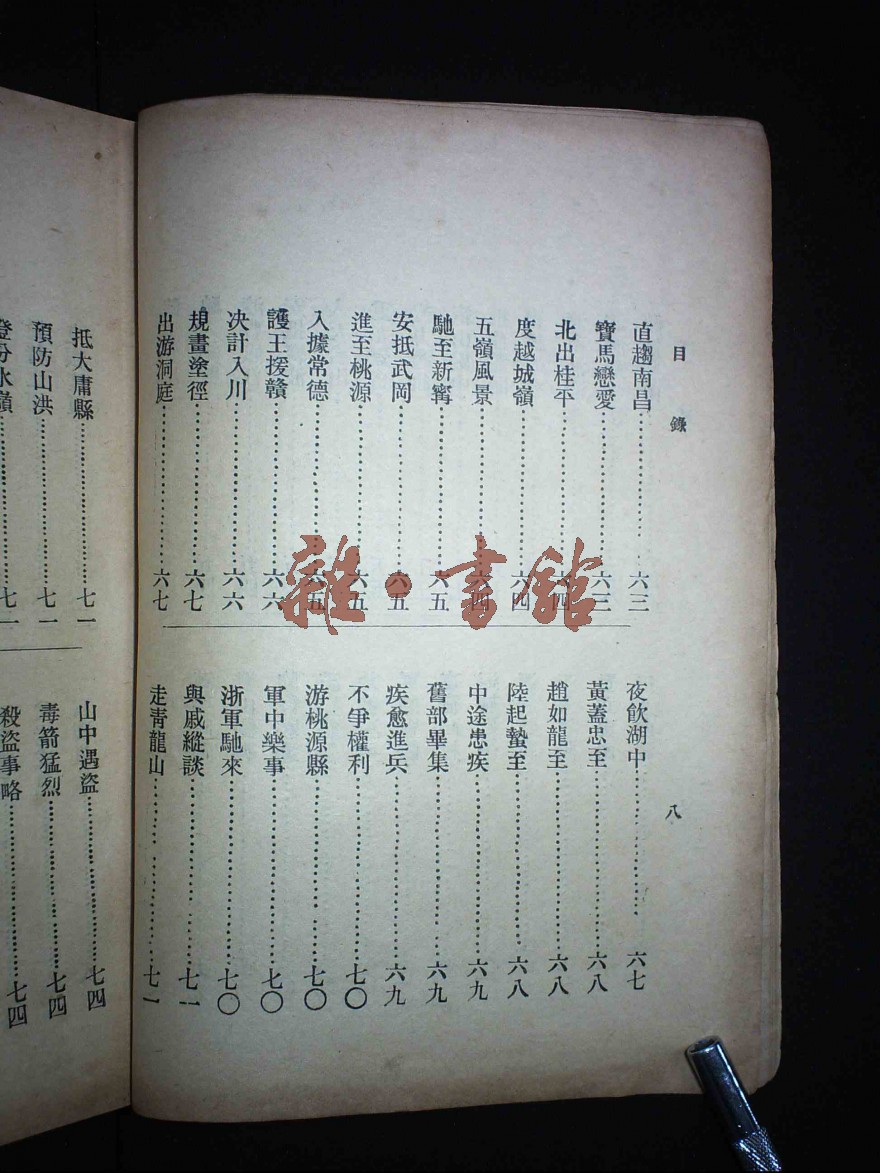 目錄
八
直趨南昌……六三
寶馬戀愛……六三
北出桂平……六四
度越城嶺……六四
五嶺風景……六四
馳至新甯……六五
安抵武岡……六五
進至桃源……六五
入據常德……六五
護王援贛……六六
决計入川……六六
規畫塗徑……六七
出游洞庭……六七
夜飲湖中……六七
黃蓋忠至……六八
趙如龍至……六八
陸起蟄至……六八
中途患疾……六九
舊部畢集……六九
疾愈進兵……六九
不爭權利……七〇
游桃源縣……七〇
軍中樂事……七〇
浙軍馳來……七〇
與戚縱談……七一
走青龍山……七一
抵大庸縣……七一
預防山洪……七一
分水嶺……七一
山中遇盜……七四
毒箭猛烈……七四
殺盜事略……七四
雜·書館